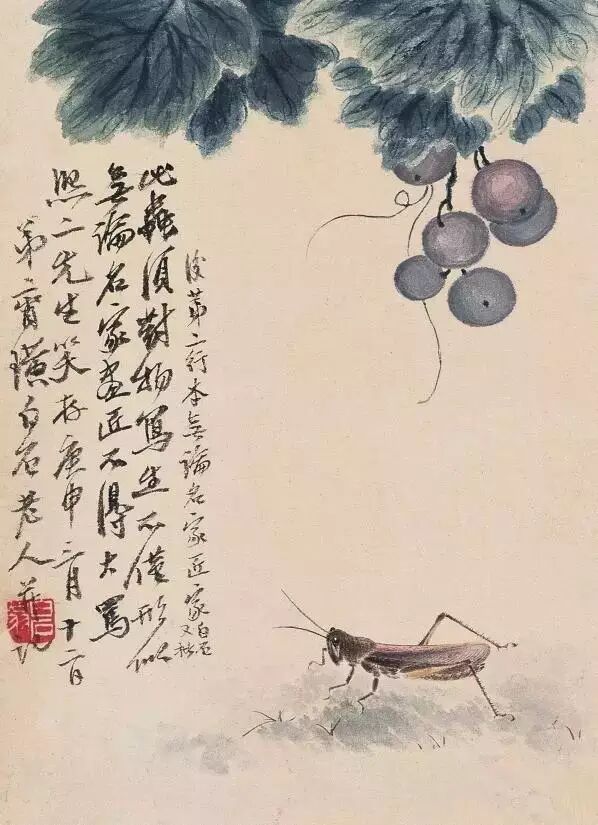 此蟲須對物寫生不僅形似
無論名家畫匠不得大罵
熙二先生笑存庚申三月十二日
弟齊璜白石老人并記
後第二行本無論名家匠家
白石又
白石翁